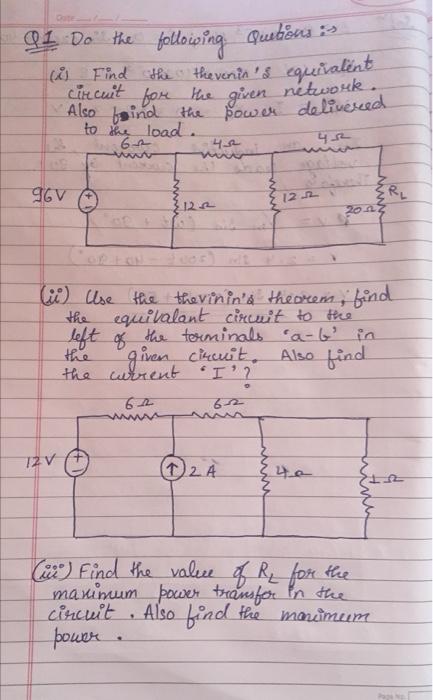 Date
Q1 Do the following Quetions :->
(i) Find the thevenin's equivalent
circuit for the given network.
Also find the power delivered
to the load.
6Ω 4Ω 4Ω
96V 12Ω 12Ω RL
20Ω
(ii) Use the thevinin's theorem, find
the equivalant circuit to the
left of the terminals 'a-b' in
the given circuit. Also find
the current 'I'?
6Ω 6Ω
12V 2A 4Ω 1Ω
(iii) Find the value of RL for the
maximum power transfer in the
circuit. Also find the maximum
power.
Page No.